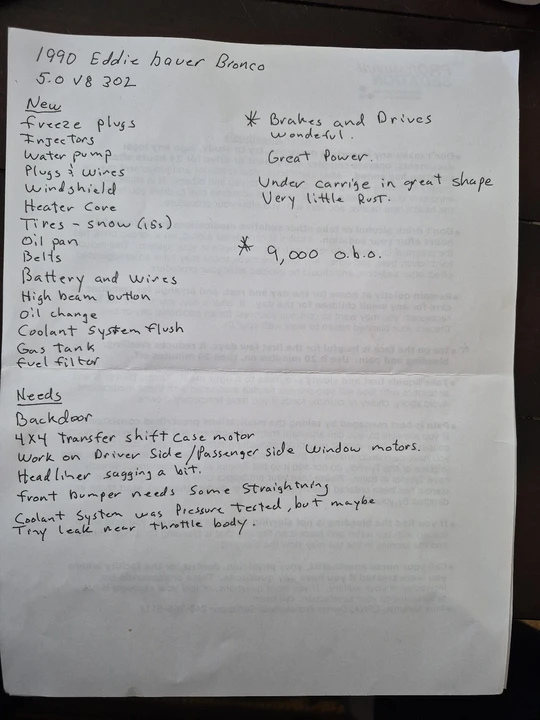 1990 Eddie bauer Bronco
5.0 V8 302
New
freeze plugs
Injectors
Water pump
Plugs & wires
Windshield
Heater Core
Tires - snow (15s)
Oil pan
Belts
Battery and wires
High beam button
Oil change
Coolant System flush
Gas tank
fuel filter
* Brakes and Drives
wondeful.
Great Power.
Under carrige in great shape
Very little Rust.
* 9,000 o.b.o.
Needs
Backdoor
4x4 transfer shift case motor
Work on Driver Side/Passenger side Window motors.
Headliner sagging a bit.
front bumper needs some Straightning
Coolant System was Pressure tested, but maybe
Tiny leak near throttle body.